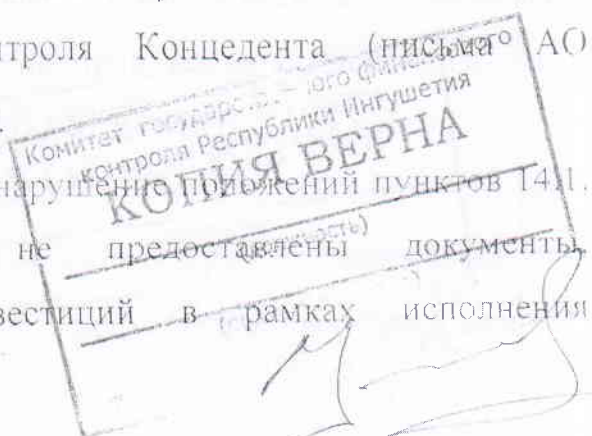 нтроля Концедента (письма АО
Комитет государственного финансового
контроля Республики Ингушетия
КОПИЯ ВЕРНА
нарушение положений пунктов 14.1.
(должность)
не предоставлены документы,
вестиций в рамках исполнения